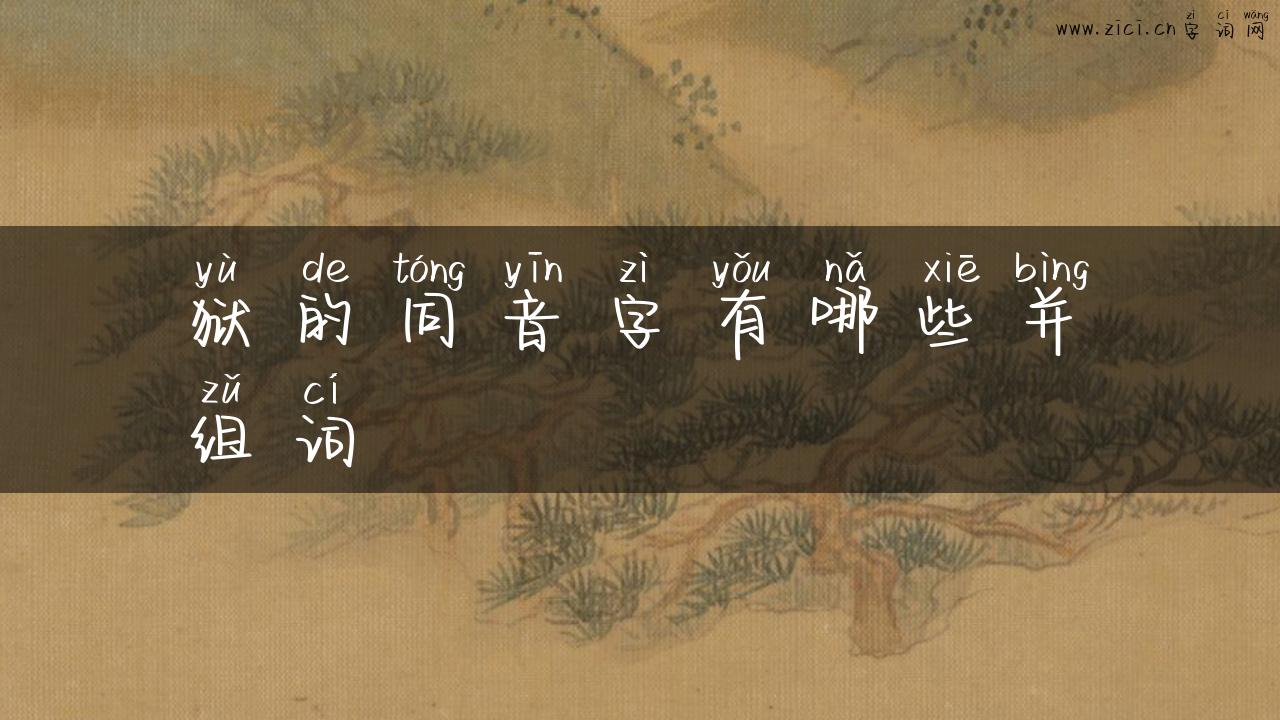 zì cí wǎng
www.zici.cn 字词网
yù de tóng yīn zì yǒu nǎ xiē bìng
狱的同音字有哪些并
zǔ cí
组词